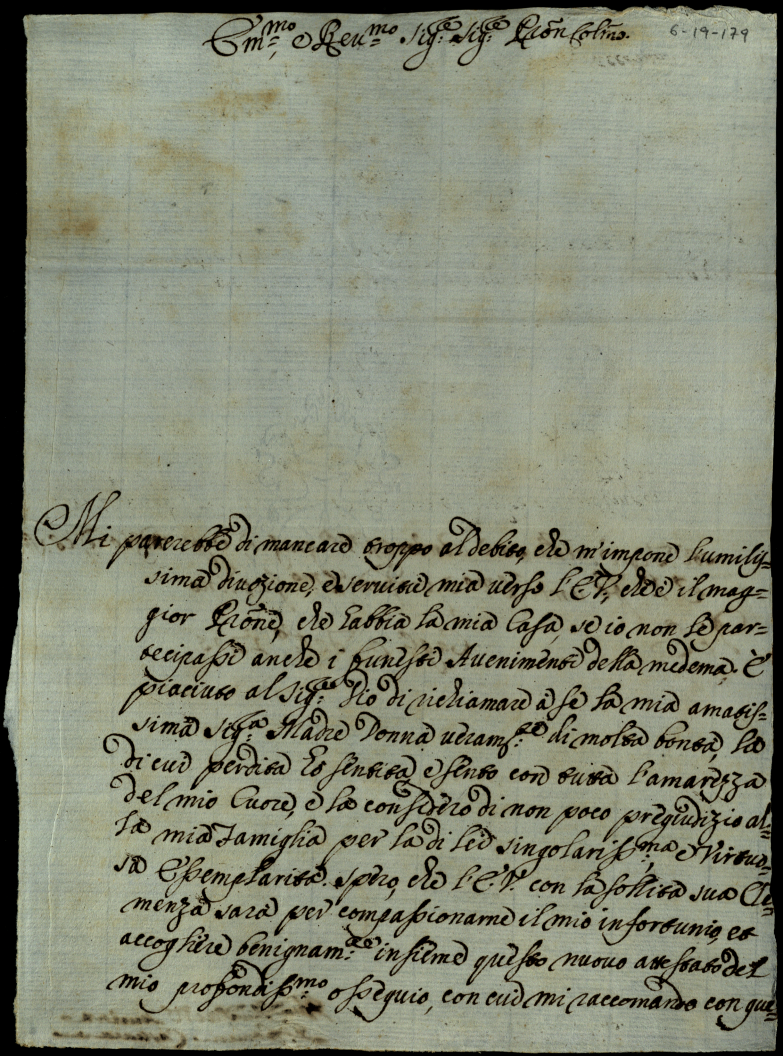 Em:mo, e Reu:mo Sig:re Sig:re Pron Colmo.
6-19-179
Mi parerebbe di mancare troppo al debito, che m'impone l'umilis=
sima diuozione, e seruitù mia uerso l'E.V., che è il mag=
gior Prone, che habbia la mia Casa, se io non le par=
tecipassi anche i funesti Auenimenti della medema. È
piaciuto al Sig:re Dio di richiamare à se la mia amatis=
sima Sig:ra Madre Donna ueram:te di molta bontà, la
di cui perdita hò sentita, e sento con tutta l'amarezza
del mio Cuore, e la considero di non poco pregiudizio al=
la mia Famiglia per la di lei singolariss:ma e Virtuo=
sa Essemplarità. Spero, che l'E.V. con la solita sua Cle=
menza sarà per compassionarne il mio infortunio, et
accogliere benignam:te insieme questo nuouo attestato del
mio profondiss:mo ossequio, con cui mi raccomando con que=